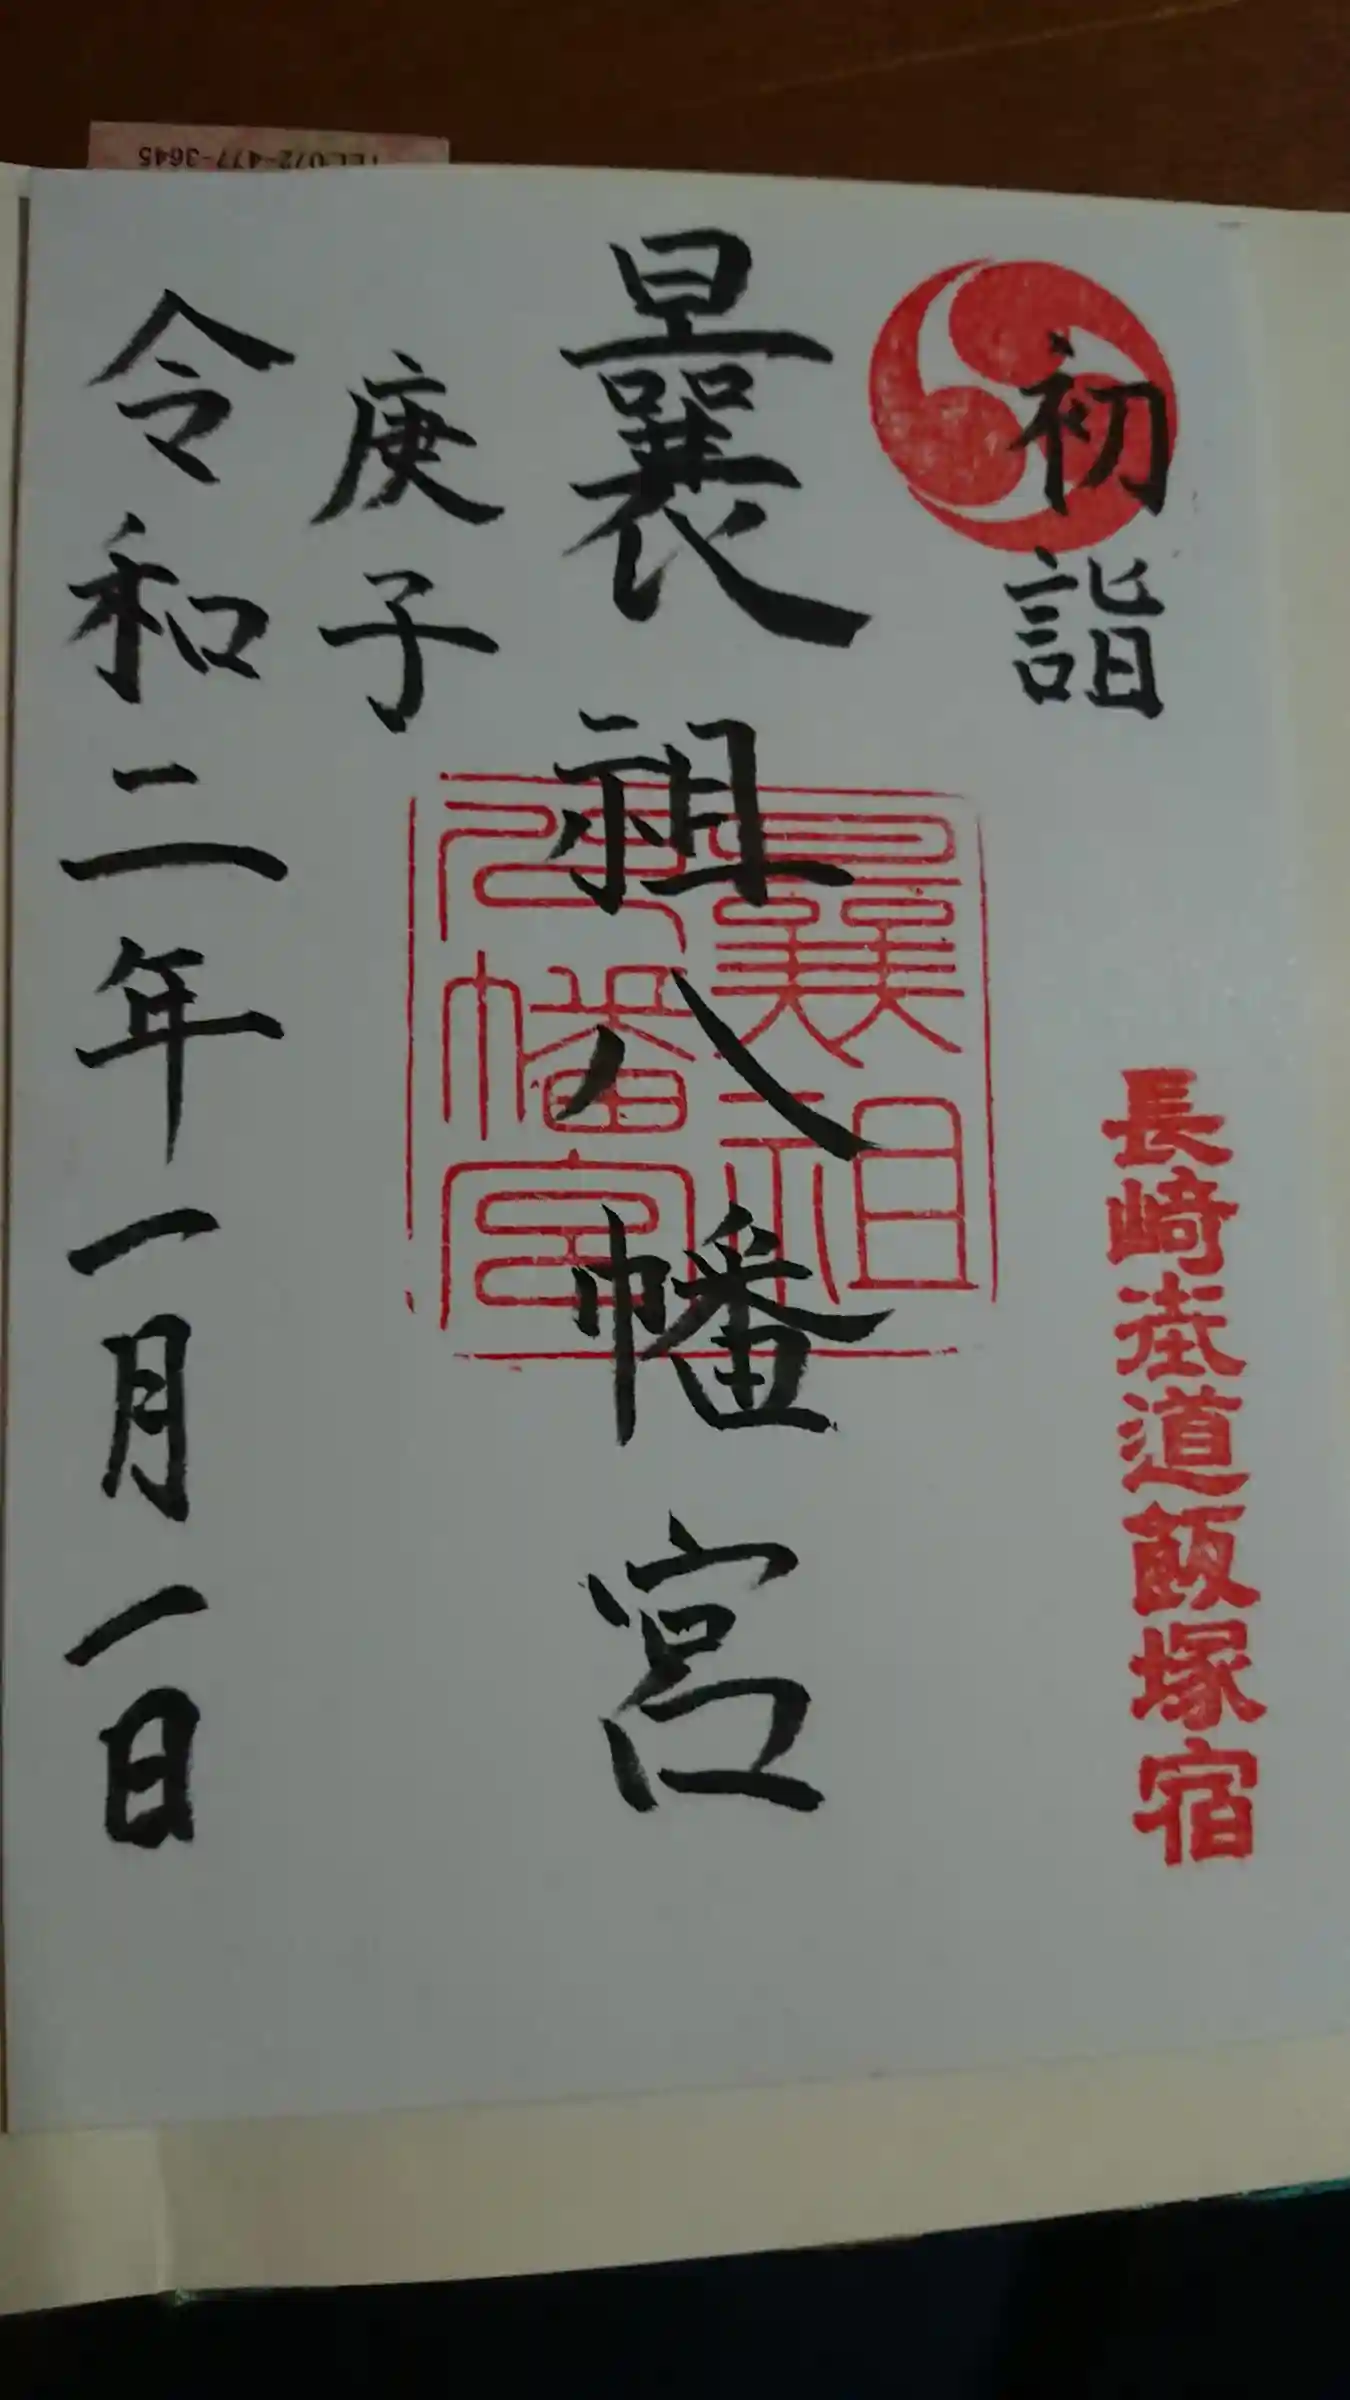 初詣
長崎街道飯塚宿
曩祖八幡宮
曩祖八幡宮
庚子
令和二年一月一日
TEL.072-477-3645